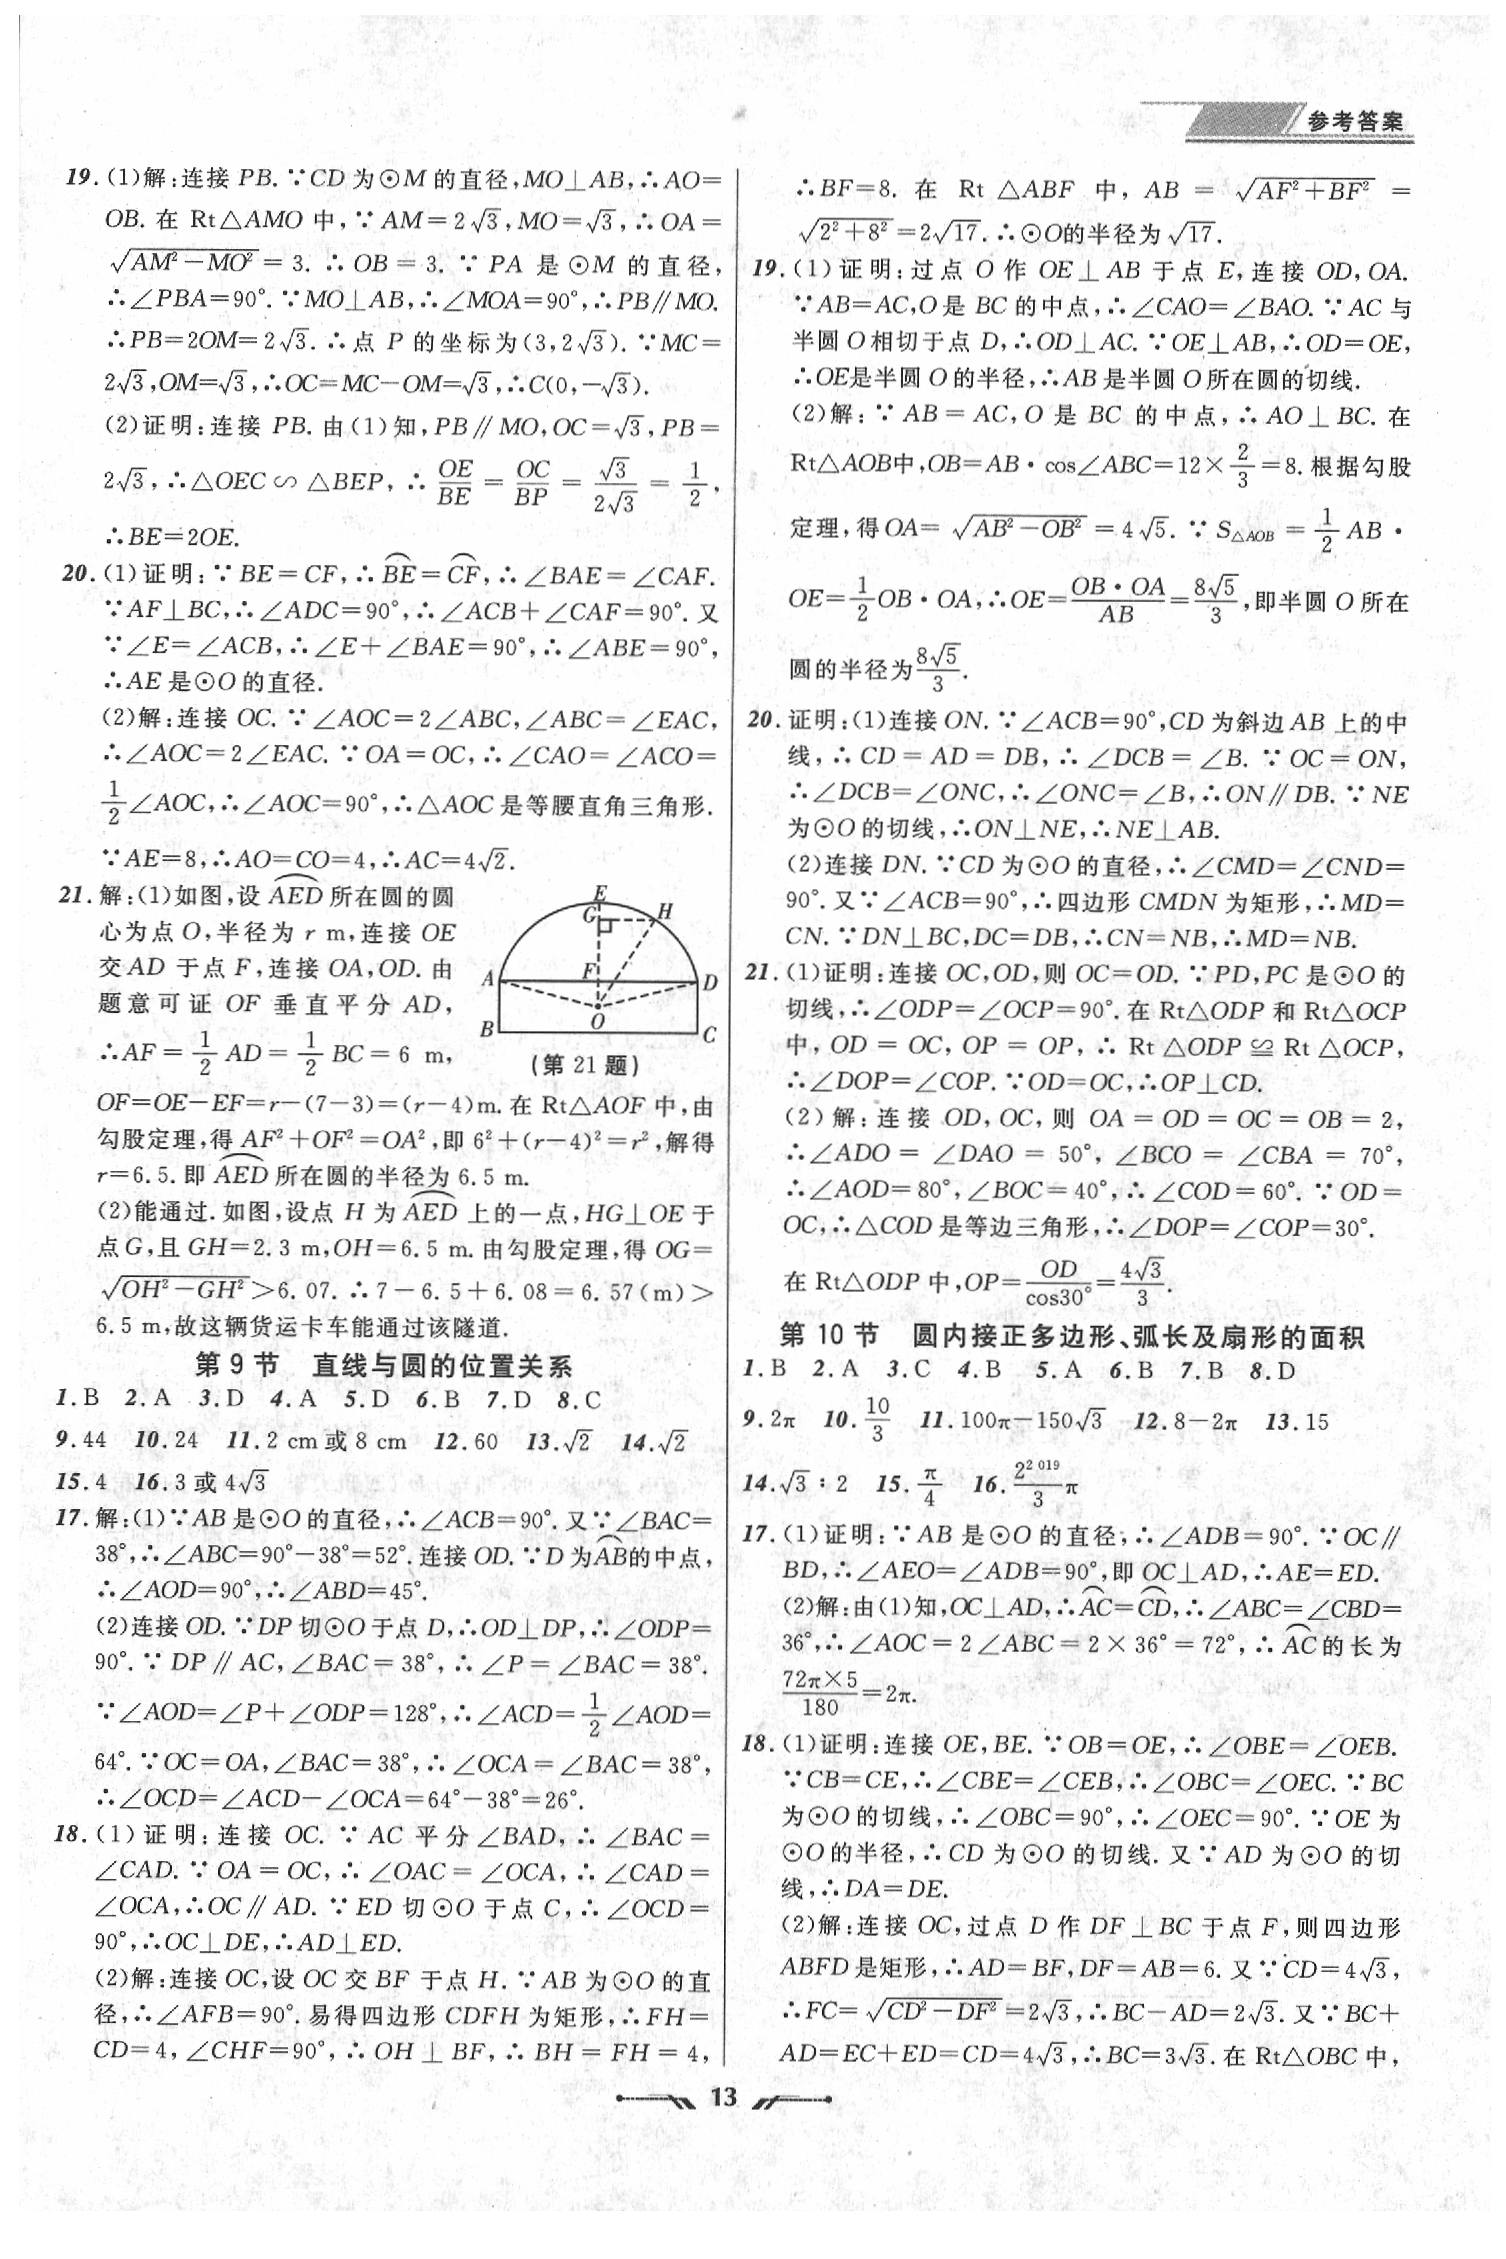 参考答案
19.(1)解:连接 PB. ∵CD为⊙M的直径,MO⊥AB,∴AO=
OB. 在 Rt△AMO 中,∵ AM=2√3,MO=√3,∴OA=
√(AM²-MO²)=3. ∴OB=3. ∵ PA 是⊙M 的直径,
∴∠PBA=90°. ∵MO⊥AB,∴∠MOA=90°,∴PB∥MO.
∴PB=2OM=2√3. ∴点 P 的坐标为(3,2√3). ∵MC=
2√3,OM=√3,∴OC=MC-OM=√3,∴C(0,-√3).
(2)证明:连接 PB. 由(1)知,PB∥MO,OC=√3,PB=
2√3,∴△OEC∽△BEP,∴OE/BE=OC/BP=√3/2√3=1/2,
∴BE=2OE.
20.(1)证明:∵BE=CF,∴⌒BE=⌒CF,∴∠BAE=∠CAF.
∵AF⊥BC,∴∠ADC=90°,∴∠ACB+∠CAF=90°. 又
∵∠E=∠ACB,∴∠E+∠BAE=90°,∴∠ABE=90°,
∴AE是⊙O的直径.
(2)解:连接 OC. ∵∠AOC=2∠ABC,∠ABC=∠EAC,
∴∠AOC=2∠EAC. ∵OA=OC,∴∠CAO=∠ACO=
1/2∠AOC,∴∠AOC=90°,∴△AOC是等腰直角三角形.
∵AE=8,∴AO=CO=4,∴AC=4√2.
21.解:(1)如图,设⌒AED所在圆的圆
心为点O,半径为 r m,连接 OE
交AD 于点F,连接 OA,OD. 由
题意可证 OF 垂直平分 AD,
∴AF=1/2AD=1/2BC=6 m,
E
G
H
A
F
D
O
B
C
(第21题)
OF=OE-EF=r-(7-3)=(r-4)m. 在 Rt△AOF 中,由
勾股定理,得 AF²+OF²=OA²,即 6²+(r-4)²=r²,解得
r=6.5. 即⌒AED所在圆的半径为 6.5 m.
(2)能通过. 如图,设点 H 为⌒AED上的一点,HG⊥OE于
点G,且 GH=2.3 m,OH=6.5 m. 由勾股定理,得 OG=
√(OH²-GH²)>6.07. ∴7-6.5+6.08=6.57(m)>
6.5 m,故这辆货运卡车能通过该隧道.
第9节 直线与圆的位置关系
1.B 2.A 3.D 4.A 5.D 6.B 7.D 8.C
9.44 10.24 11.2 cm或8 cm 12.60 13.√2 14.√2
15.4 16.3或4√3
17.解:(1)∵AB是⊙O的直径,∴∠ACB=90°. 又∵∠BAC=
38°,∴∠ABC=90°-38°=52°. 连接 OD. ∵D为⌒AB的中点,
∴∠AOD=90°,∴∠ABD=45°.
(2)连接 OD. ∵DP切⊙O于点 D,∴OD⊥DP,∴∠ODP=
90°. ∵DP∥AC,∠BAC=38°,∴∠P=∠BAC=38°.
∵∠AOD=∠P+∠ODP=128°,∴∠ACD=1/2∠AOD=
64°. ∵OC=OA,∠BAC=38°,∴∠OCA=∠BAC=38°,
∴∠OCD=∠ACD-∠OCA=64°-38°=26°.
18.(1)证明:连接 OC. ∵AC 平分∠BAD,∴∠BAC=
∠CAD. ∵OA=OC,∴∠OAC=∠OCA,∴∠CAD=
∠OCA,∴OC∥AD. ∵ED 切⊙O 于点 C,∴∠OCD=
90°,∴OC⊥DE,∴AD⊥ED.
(2)解:连接 OC,设 OC 交 BF 于点 H. ∵AB为⊙O的直
径,∴∠AFB=90°. 易得四边形 CDFH 为矩形,∴FH=
CD=4,∠CHF=90°,∴OH⊥BF,∴BH=FH=4,
∴BF=8. 在 Rt△ABF 中,AB=√(AF²+BF²)=
√(2²+8²)=2√17. ∴⊙O的半径为√17.
19.(1)证明:过点 O 作 OE⊥AB 于点 E,连接 OD,OA.
∵AB=AC,O是 BC的中点,∴∠CAO=∠BAO. ∵AC与
半圆O相切于点 D,∴OD⊥AC. ∵OE⊥AB,∴OD=OE,
∴OE是半圆O的半径,∴AB是半圆O所在圆的切线.
(2)解:∵AB=AC,O 是 BC 的中点,∴AO⊥BC. 在
Rt△AOB中,OB=AB·cos∠ABC=12×2/3=8. 根据勾股
定理,得 OA=√(AB²-OB²)=4√5. ∵S△AOB=1/2AB·
OE=1/2OB·OA,∴OE=OB·OA/AB=8√5/3,即半圆O所在
圆的半径为8√5/3.
20.证明:(1)连接ON. ∵∠ACB=90°,CD为斜边AB上的中
线,∴CD=AD=DB,∴∠DCB=∠B. ∵OC=ON,
∴∠DCB=∠ONC,∴∠ONC=∠B,∴ON∥DB. ∵NE
为⊙O的切线,∴ON⊥NE,∴NE⊥AB.
(2)连接 DN. ∵CD为⊙O的直径,∴∠CMD=∠CND=
90°. 又∵∠ACB=90°,∴四边形 CMDN为矩形,∴MD=
CN. ∵DN⊥BC,DC=DB,∴CN=NB,∴MD=NB.
21.(1)证明:连接 OC,OD,则 OC=OD. ∵PD,PC 是⊙O的
切线,∴∠ODP=∠OCP=90°. 在 Rt△ODP 和 Rt△OCP
中,OD=OC,OP=OP,∴Rt△ODP≌Rt△OCP,
∴∠DOP=∠COP. ∵OD=OC,∴OP⊥CD.
(2)解:连接 OD,OC,则 OA=OD=OC=OB=2,
∴∠ADO=∠DAO=50°,∠BCO=∠CBA=70°,
∴∠AOD=80°,∠BOC=40°,∴∠COD=60°. ∵OD=
OC,∴△COD是等边三角形,∴∠DOP=∠COP=30°.
在 Rt△ODP中,OP=OD/cos30°=4√3/3.
第10节 圆内接正多边形、弧长及扇形的面积
1.B 2.A 3.C 4.B 5.A 6.B 7.B 8.D
9.2π 10.10/3 11.100π-150√3 12.8-2π 13.15
14.√3∶2 15.π/4 16.2^2 019/3 π
17.(1)证明:∵AB是⊙O的直径,∴∠ADB=90°. ∵OC∥
BD,∴∠AEO=∠ADB=90°,即OC⊥AD,∴AE=ED.
(2)解:由(1)知,OC⊥AD,∴⌒AC=⌒CD,∴∠ABC=∠CBD=
36°,∴∠AOC=2∠ABC=2×36°=72°,∴⌒AC的长为
72π×5/180=2π.
18.(1)证明:连接 OE,BE. ∵OB=OE,∴∠OBE=∠OEB.
∵CB=CE,∴∠CBE=∠CEB,∴∠OBC=∠OEC. ∵BC
为⊙O的切线,∴∠OBC=90°,∴∠OEC=90°. ∵OE为
⊙O的半径,∴CD为⊙O的切线. 又∵AD为⊙O的切
线,∴DA=DE.
(2)解:连接 OC,过点 D 作 DF⊥BC 于点 F,则四边形
ABFD是矩形,∴AD=BF,DF=AB=6. 又∵CD=4√3,
∴FC=√(CD²-DF²)=2√3,∴BC-AD=2√3. 又∵BC+
AD=EC+ED=CD=4√3,∴BC=3√3. 在 Rt△OBC中,
13